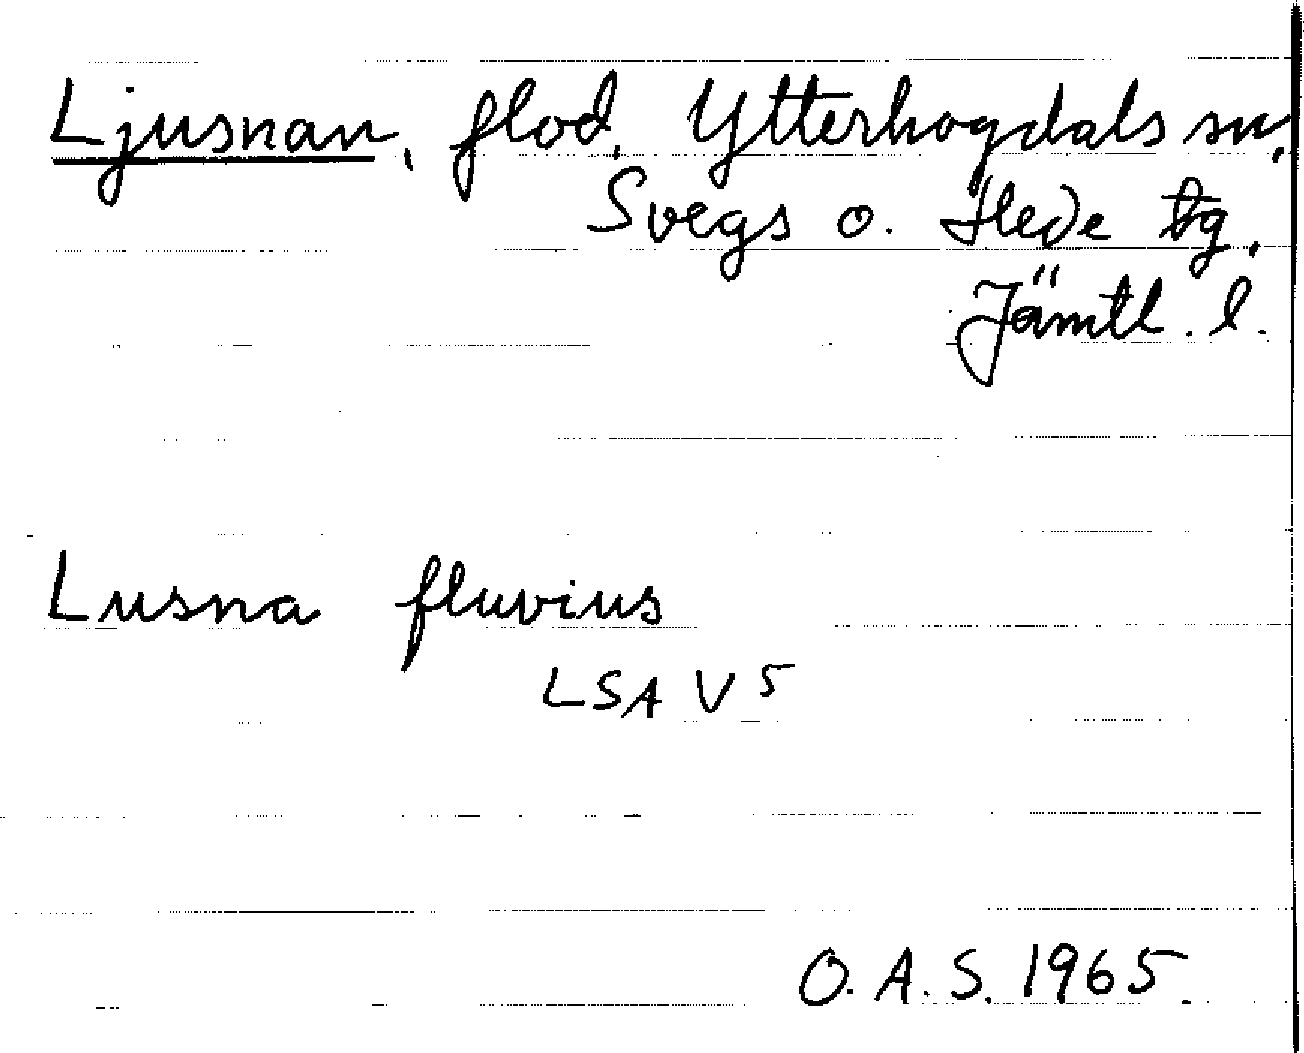 Ljusnan, flod, Ytterhogdals sn,
Svegs o. Hede tg,
Jämtl. l.
Lusna fluvius
LSA V 5
O. A. S. 1965.